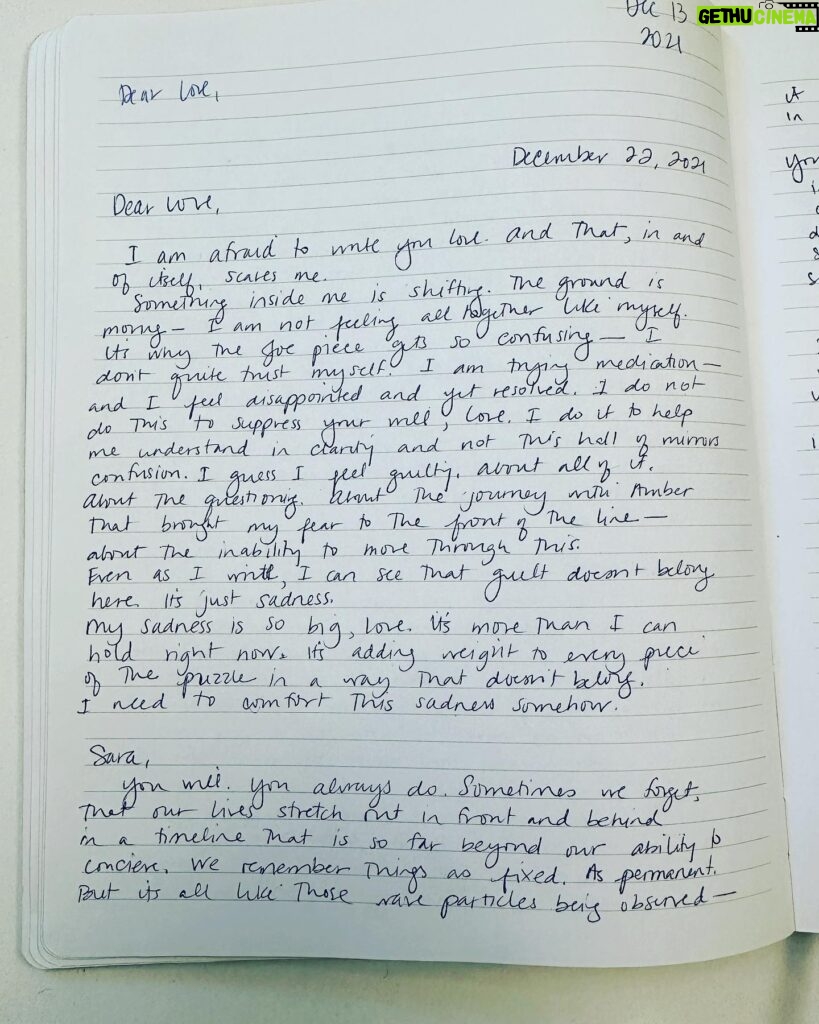 GETHU CINEMA
Dec 13
2021
Dear Love,
December 22, 2021
Dear Love,
I am afraid to write you love. And That, in and
of itself, scares me.
Something inside me is shifting. The ground is
moving — I am not feeling all together like myself.
It's why The Joe piece gets so confusing — I
don't quite trust myself. I am trying medication —
and I feel disappointed and yet resolved. I do not
do This to suppress your will, love. I do it to help
me understand in clarity and not This hall of mirrors
confusion. I guess I feel guilty. about all of it.
About The questioning. About The journey with Amber
That brought my fear to The front of The line —
about The inability to move Through This.
Even as I write, I can see That guilt doesn't belong
here. It's just sadness.
My sadness is so big, love. It's more Than I can
hold right now. It's adding weight to every piece
of The puzzle in a way That doesn't belong.
I need to comfort This sadness somehow.
Sara,
You will. You always do. Sometimes we forget,
That our lives stretch out in front and behind
in a timeline That is so far beyond our ability to
concieve. We remember Things as fixed. As permanent.
But its all like Those wave particles being observed —
it
in
you